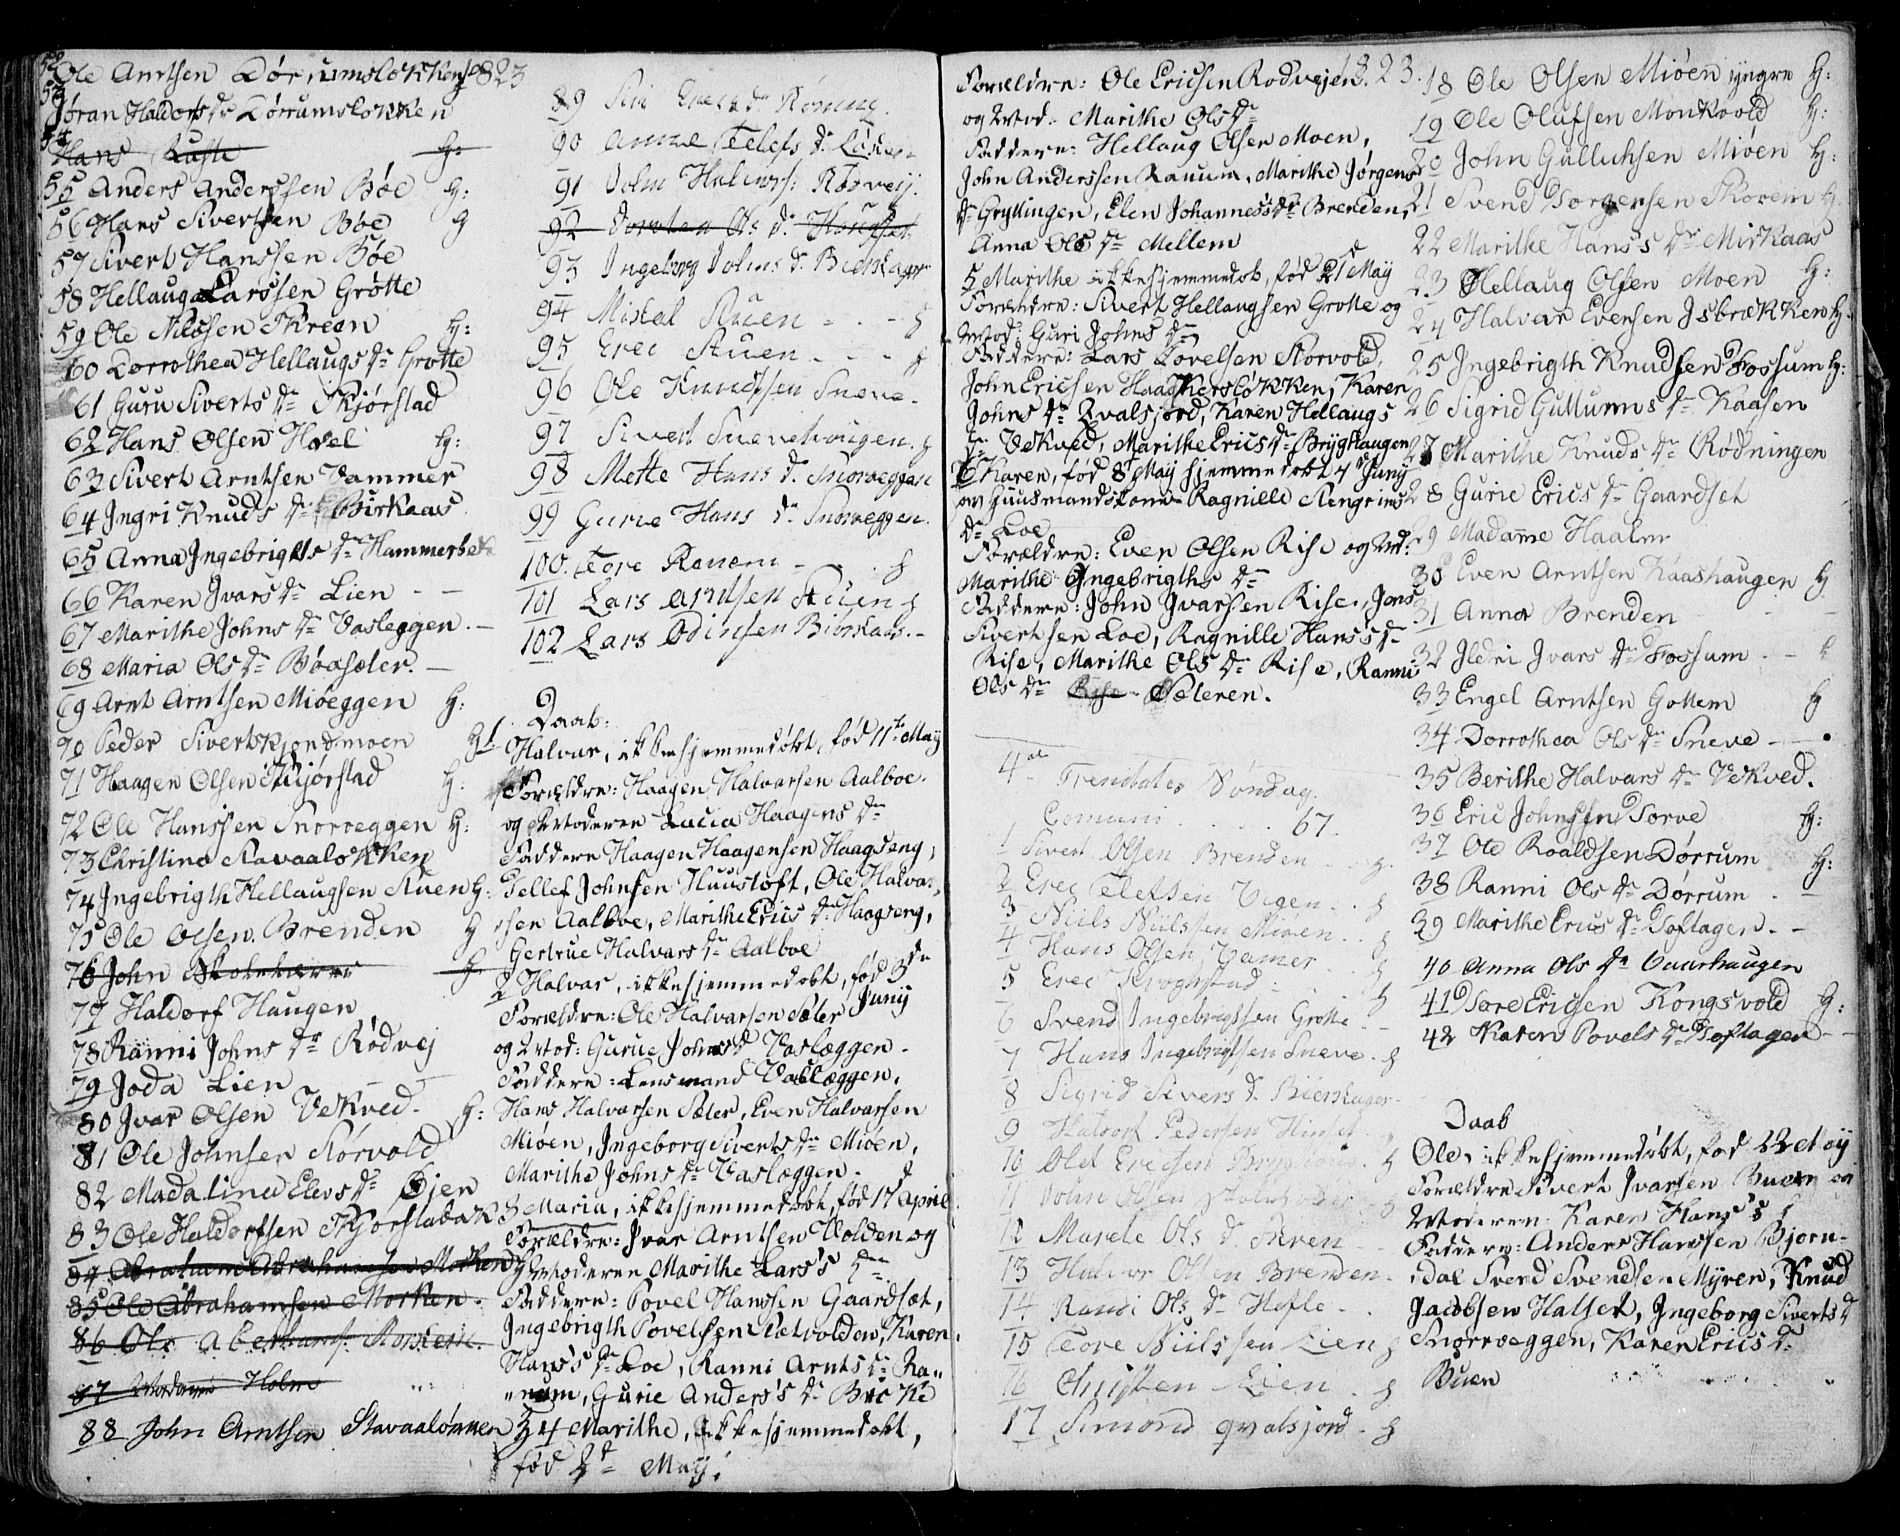 52 Ole Arntsen Dørrumsløkken 1823
53 Jøran Haldors dr Dørrumsløkken
54 Hans Ruste H:
55 Anders Anderssen Bøe H:
56 Hans Sivertsen Bøe H
57 Sivert Hanssen Bøe
58 Hellaug Larssen Grøtte
59 Ole Nilssen Skreen H:
60 Dorrothea Hellaugs dr Grøtte
61 Guru Siverts dr Skjørstad
62 Hans Olsen Hoel H:
63 Sivert Arntsen Vammer
64 Ingri Knuds dr Birkaas
65 Anna Ingebrigts dr Hammerbek
66 Karen Ivars dr Lien
67 Marithe Johns dr Vasleggen
68 Maria Ols dr Bøasæter
69 Arnt Arntsen Miøeggen H:
70 Peder Sivertskjondmoen H
71 Haagen Olsen Skjørstad H:
72 Ole Hanssen Snoeveggen H:
73 Christina Stavaaløkken
74 Ingebrigth Hellaugsen Stuen H:
75 Ole Olsen Brenden H
76 John Skoleholder H
77 Haldorf Haugen
78 Ranni Johns dr Rødvej
79 Joda Lien
80 Ivar Olsen Vekved H:
81 Ole Johnsen Storvold
82 Madalina Elevs dr Øien
83 Ole Haldorfsen Skjørstadbak
84 Abraham Abrahamsen Morken H
85 Ole Abrahamsen Morken
86 Ole
87 Madame Holm
88 John Arntsen Stavaaløkken
89 Siri Erics dr Roning
90 Anne Telefs dr
91 John Halvors: Rødveij
92 Dorotea Ols dr Haugset
93 Ingeborg Johns dr Bierskager
94 Mistal Stuen H
95 Erec Stuen H
96 Ole Knudtsen Sneve
97 Sivert Snevehougen H
98 Mette Hans dr Snoeveggen
99 Gurue Hans dr Snoeveggen
100 Tore Ranem H
101 Lars Arntsen Stuen H
102 Lars Odinsen Biørkaas
Daab:
Halvar, ikke hjemmedøbt, fød 11te May
Forældre: Haagen Halvarsen Aalboe
og Moderen Lucia Haagens dr
Faddere Haagen Haagensen Haagseng,
Tellef Johnsen Huustoft, Ole Halvar-
sen Aalboe, Marithe Erics dr Haagseng,
Gertrue Halvars dr Aalboe
2 Halvar, ikke hjemmedøbt, fød 3de
Juny
Forældre: Ole Halvarsen Sæter
og Mod: Gurue Johns dr Vasleggen
Faddere: Lensmand Vasleggen,
Hans Halvarsen Sæter, Even Halvarsen
Miøen, Ingeborg Siverts dr Miøen,
Marithe Johns dr Vasleggen.
3 Maria, ikke hjemmedøbt, fød 17 April
Forældre: Ivar Arntsen Volden og
Moderen Marithe Lars's dr
Faddere: Povel Hanssen Gaardsæt,
Ingebrigth Povelsen Sletvolden, Karen
Hans's dr Loe, Ranni Arnts dr Ra-
num, Gurie Anders's dr Brekke
4 Marithe, ikke hjemmedøbt,
fød 2de May.
Forældre: Ole Ericsen Rødvejen 1823.
og Mod: Marithe Ols dr
Faddere: Hellaug Olsen Moen,
John Anderssen Ranum, Marithe Jørgens
dr Gryttingen, Elen Johanness dr Brenden,
Anna Ols dr Mellem
5 Marithe ikke hjemmedøbt, fød 21 May
Forældre: Sivert Hellaugsen Grøtte og
Mod: Guri Johns dr
Faddere: Lars Lovelsen Storvold,
John Ericsen Haagkersløkken, Karen
Johns dr Qvalsjord, Karen Hellaugs
dr Vekved, Marithe Erics dr Brygthaugen
6 Karen, fød 8de May hjemmedøbt 4de Juny
af Huusmandskone Ragnille Stengrims
dr Loe
Forældre: Even Olsen Rise og Md:
Marithe Ingebrigths dr
Faddere: John Ivarsen Rise, Jens
Sivertsen Loe, Ragnille Hans's dr
Rise, Marithe Ols dr Rise, Ranni
Ols dr Rise Sæteren.
4de Trenitates Søndag.
Comuni 67.
1 Sivert Olsen Brenden H
2 Erec Telefsen Vigen H
3 Niils Niilssen Miøen
4 Hans Olsen Vamer H
5 Erec Krogstad H
6 Svend Ingebrigtsen Grøtte
7 Hans Ingebrigtsen Sneve H
8 Sigrid Sivers dr Bierskager
9 Haldorf Pedersen Himlet
10 Olet Ericsen Brygthaug H
11 John Olsen Skoleholder H
12 Marete Ols dr Skreen
13 Halvor Olsen Brenden
14 Randi Ols dr Hofle
15 Tore Niilssen Lien H
16 Christen Lien H
17 Simond Qvalsjord H
18 Ole Olsen Miøen yngre H:
19 Ole Olufsen Monkvold H:
20 John Gulluhsen Miøen H:
21 Svend Jørgensen Skorem H
22 Marithe Hans's dr Mirkaas
23 Hellaug Olsen Moen H:
24 Halvar Evensen Isbrekken H
25 Ingebrigth Knudsen Fossum H:
26 Sigrid Gullunns dr Kaasen
27 Marithe Knuds dr Rødningen
28 Gurie Erics dr Gaardset
29 Madame Haalm
30 Even Arntsen Kaashaugen H
31 Anna Brenden
32 Ildri Ivars dr Fossum
33 Engel Arntsen Gottem H
34 Dorrothea Ols dr Sneve
35 Berithe Halvars dr Vekved.
36 Eric Johnsen Torve H:
37 Ole Roaldsen Dørrum H:
38 Ranni Ols dr Dørrum
39 Marithe Erics dr Toftagen
40 Anna Ols dr Vaarhaugen
41 Tore Ericsen Kongsvold H:
42 Karen Povels dr Toftagen
Daab
Ole, ikke hjemmedøbt, fød 22 May
Forældre Sivert Ivarsen Buen og
Moderen Karen Hans's dr
Faddere: Anders Hanssen Bjørn-
dal Svend Svendsen Myren, Knud
Jacobsen Halset, Ingeborg Siverts dr
Snorveggen, Karen Erics dr
Buen